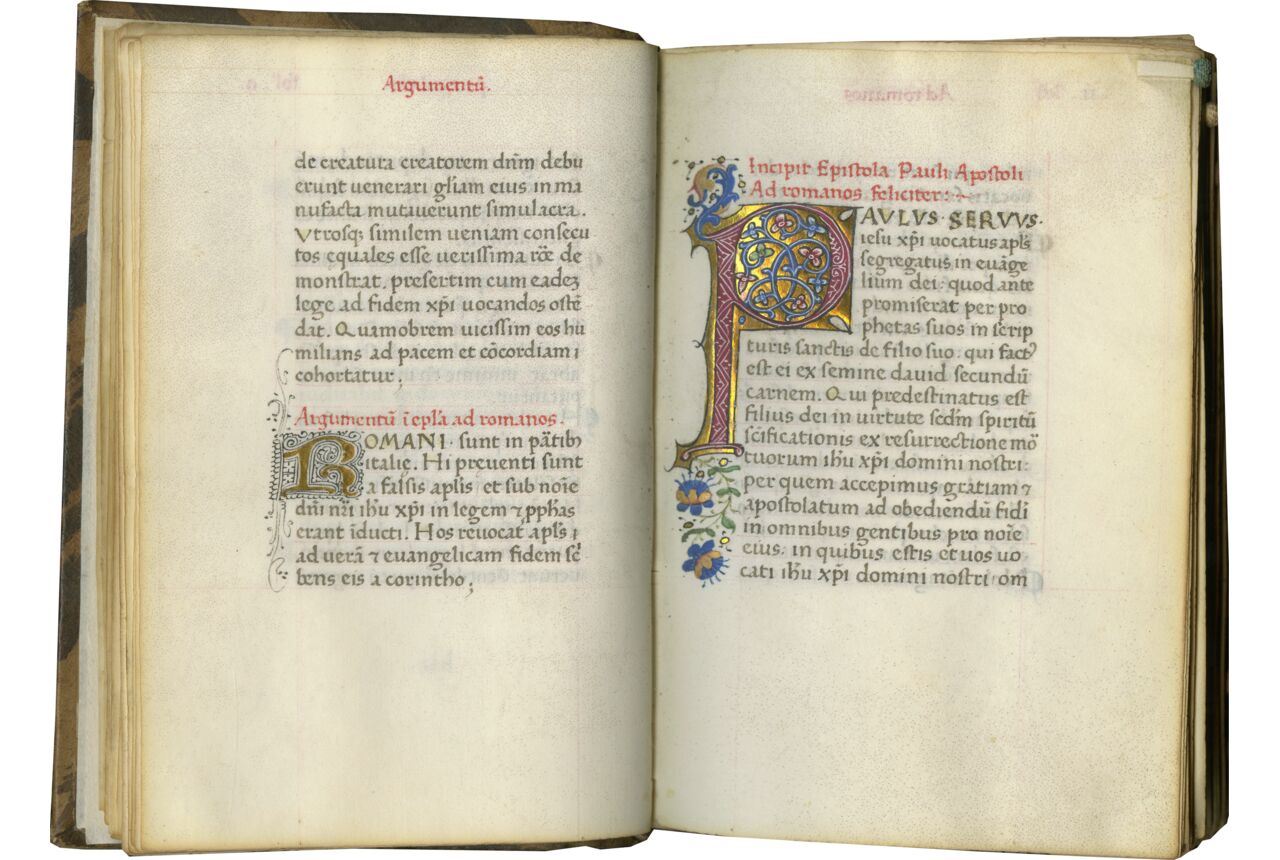 Argumentū.
de creatura creatorem dnm̄ debu
erunt uenerari gl̄iam eius in ma
nufacta mutauerunt simulacra.
Vtrosq; similem ueniam consecu
tos equales esse uerissima rōe de
monstrat. presertim cum eadeʒ
lege ad fidem xp̄i uocandos ostē
dat. Quamobrem uicissim eos hu
milians ad pacem et cōcordiam
cohortatur;
Argumentū ī epl̄a ad romanos.
ROMANI· sunt in ptib
italię. Hi preuenti sunt
a falsis apl̄is et sub noīe
dnī nr̄i ihu xp̄i in legem ⁊ pphas
erant īducti. Hos reuocat apl̄s
ad uerā ⁊ euangelicam fidem scī
bens eis a corintho;
Ad romanos
Incipit Epistola Pauli Apostoli
Ad romanos feliciter:
PAVLVS· SERVVS·
iesu xp̄i uocatus apl̄s
segregatus in euāge
lium dei: quod ante
promiserat per pro
phetas suos in scrip
turis sanctis de filio suo. qui fact᾿
est ei ex semine dauid secundū
carnem. Qui predestinatus est
filius dei in uirtute sedm̄ spiritū
sc̄ificationis ex resurrectione mo᷑
tuorum ihu xp̄i domini nostri:
per quem accepimus gratiam ⁊
apostolatum ad obediendū fidī
in omnibus gentibus pro noīe
eius: in quibus estis et uos uo
cati ihu xp̄i domini nostri: om̄